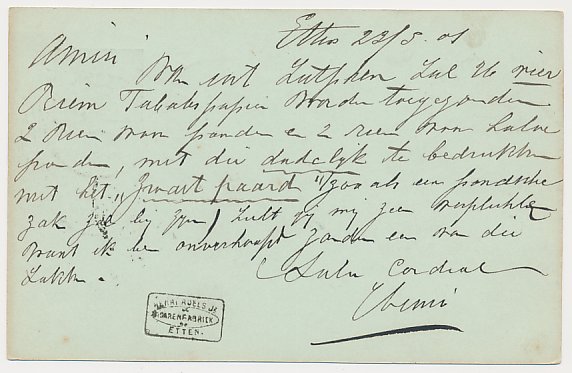 Etten 22/5.01
Amice
U uit Zutphen zal U vier
Riem Tabakspapier worden toegezonden
2 Riem van ponden en 2 riem van halve
ponden, met die dadelijk te bedrukken
met het "Zwart paard" (zooals een pondsche
zak hierbij gaat) zult gij mij zeer verplichten
Want ik ben onverhoopt zonder een van die
Zakken.
Salu Cordial
Henri
HENRI Jr.
SIGARENFABRIEK
ETTEN